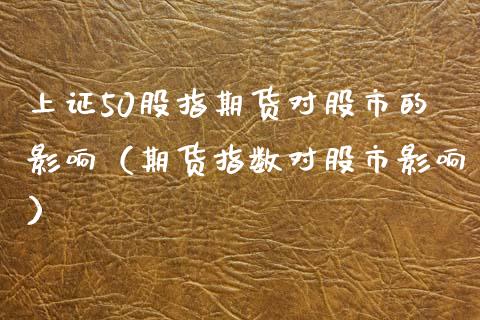 上证50股指期货对股市的
影响（期货指数对股市影响
）